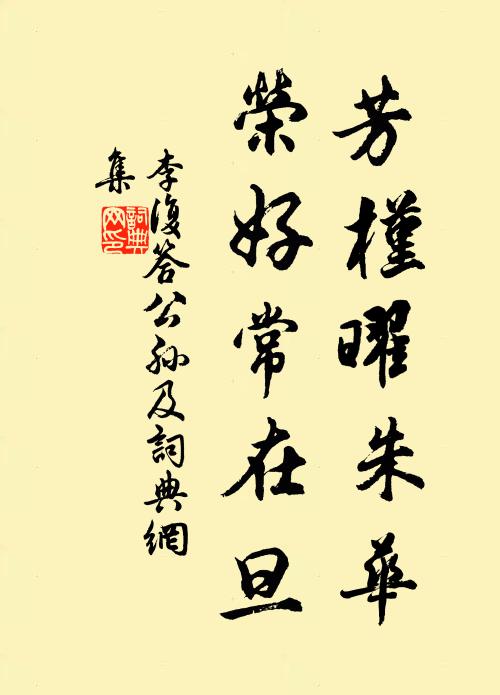 芳槿曜朱華
榮好常在旦
李復答公孫及詞典網
集
詞典
网印